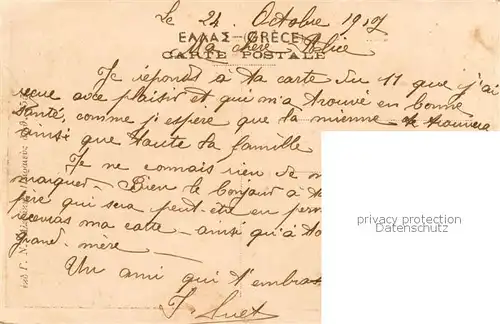 Le 24. Octobre 1917
ΕΛΛΑΣ–GRÈCE
Ma chère Alice
CARTE POSTALE
Je répond à ta carte du 11 que j'ai
reçue avec plaisir et qui m'a trouvé en bonne
santé, comme j'espère que la mienne te trouvera
ainsi que toute ta famille
Je ne connais rien de
marquer – Bien le bonjour à
père qui sera peut-être en
recevras ma carte – ainsi qu'à
grand-mère –
Un ami qui t'embras
privacy protection
www.